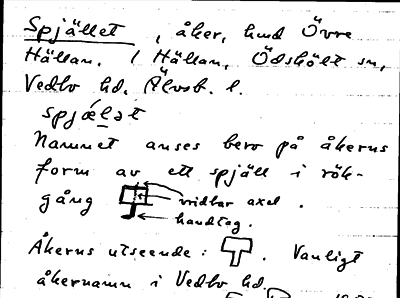 Spjället, åker, hmd Övre
Hällan. / Hällan, Ödskölt sn,
Vedbo hd. Älvsb. l.
spjǽlət
Namnet anses bero på åkerns
form av ett spjäll i rök-
gång vridbar axel.
handtag.
Åkerns utseende: . Vanligt
åkernamn i Vedbo hd.